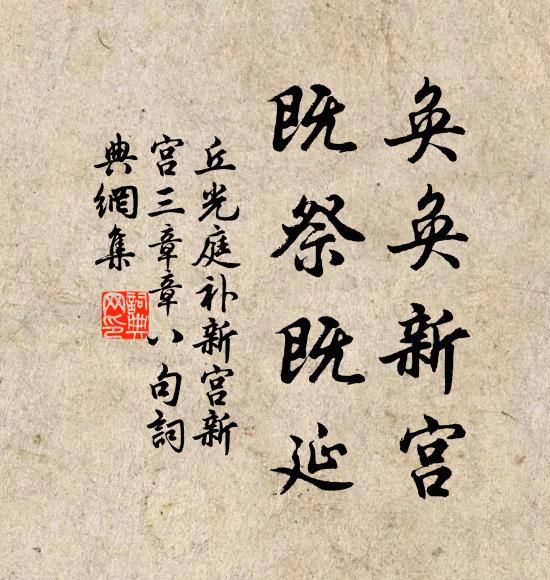 奂奂新宫
既祭既延
丘光庭补新宫新
宫三章章八句詞
典網集
詞典网印